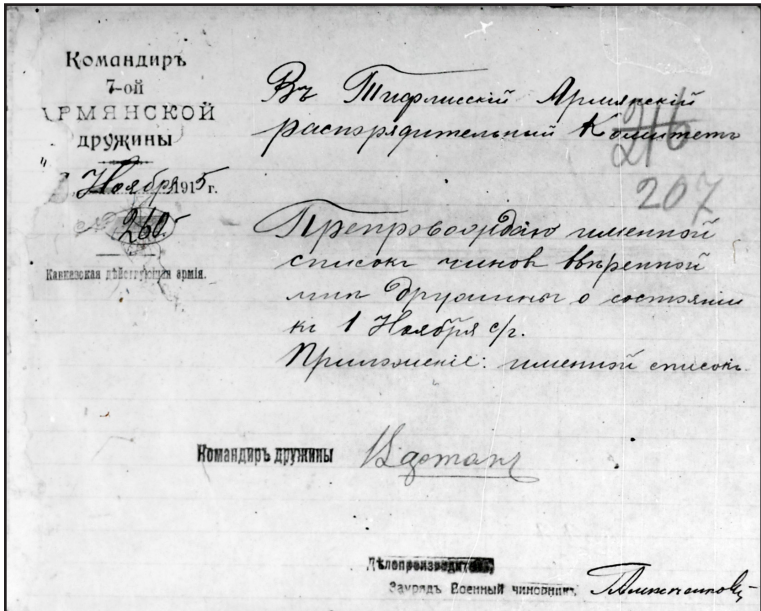 Командиръ
7-ой
АРМЯНСКОЙ
дружины
Ноября 1915 г.
№ 260
Кавказская дѣйствующая армія.
Въ Тифлисскій Армянскій
распорядительный Комитетъ
216
207
Препровождаю именной
списокъ чиновъ ввѣренной
мнѣ дружины о состояніи
къ 1 Ноября с/г.
Приложеніе: именной списокъ.
Командиръ дружины
Дѣлопроизводитель,
Заурядъ Военный чиновникъ,